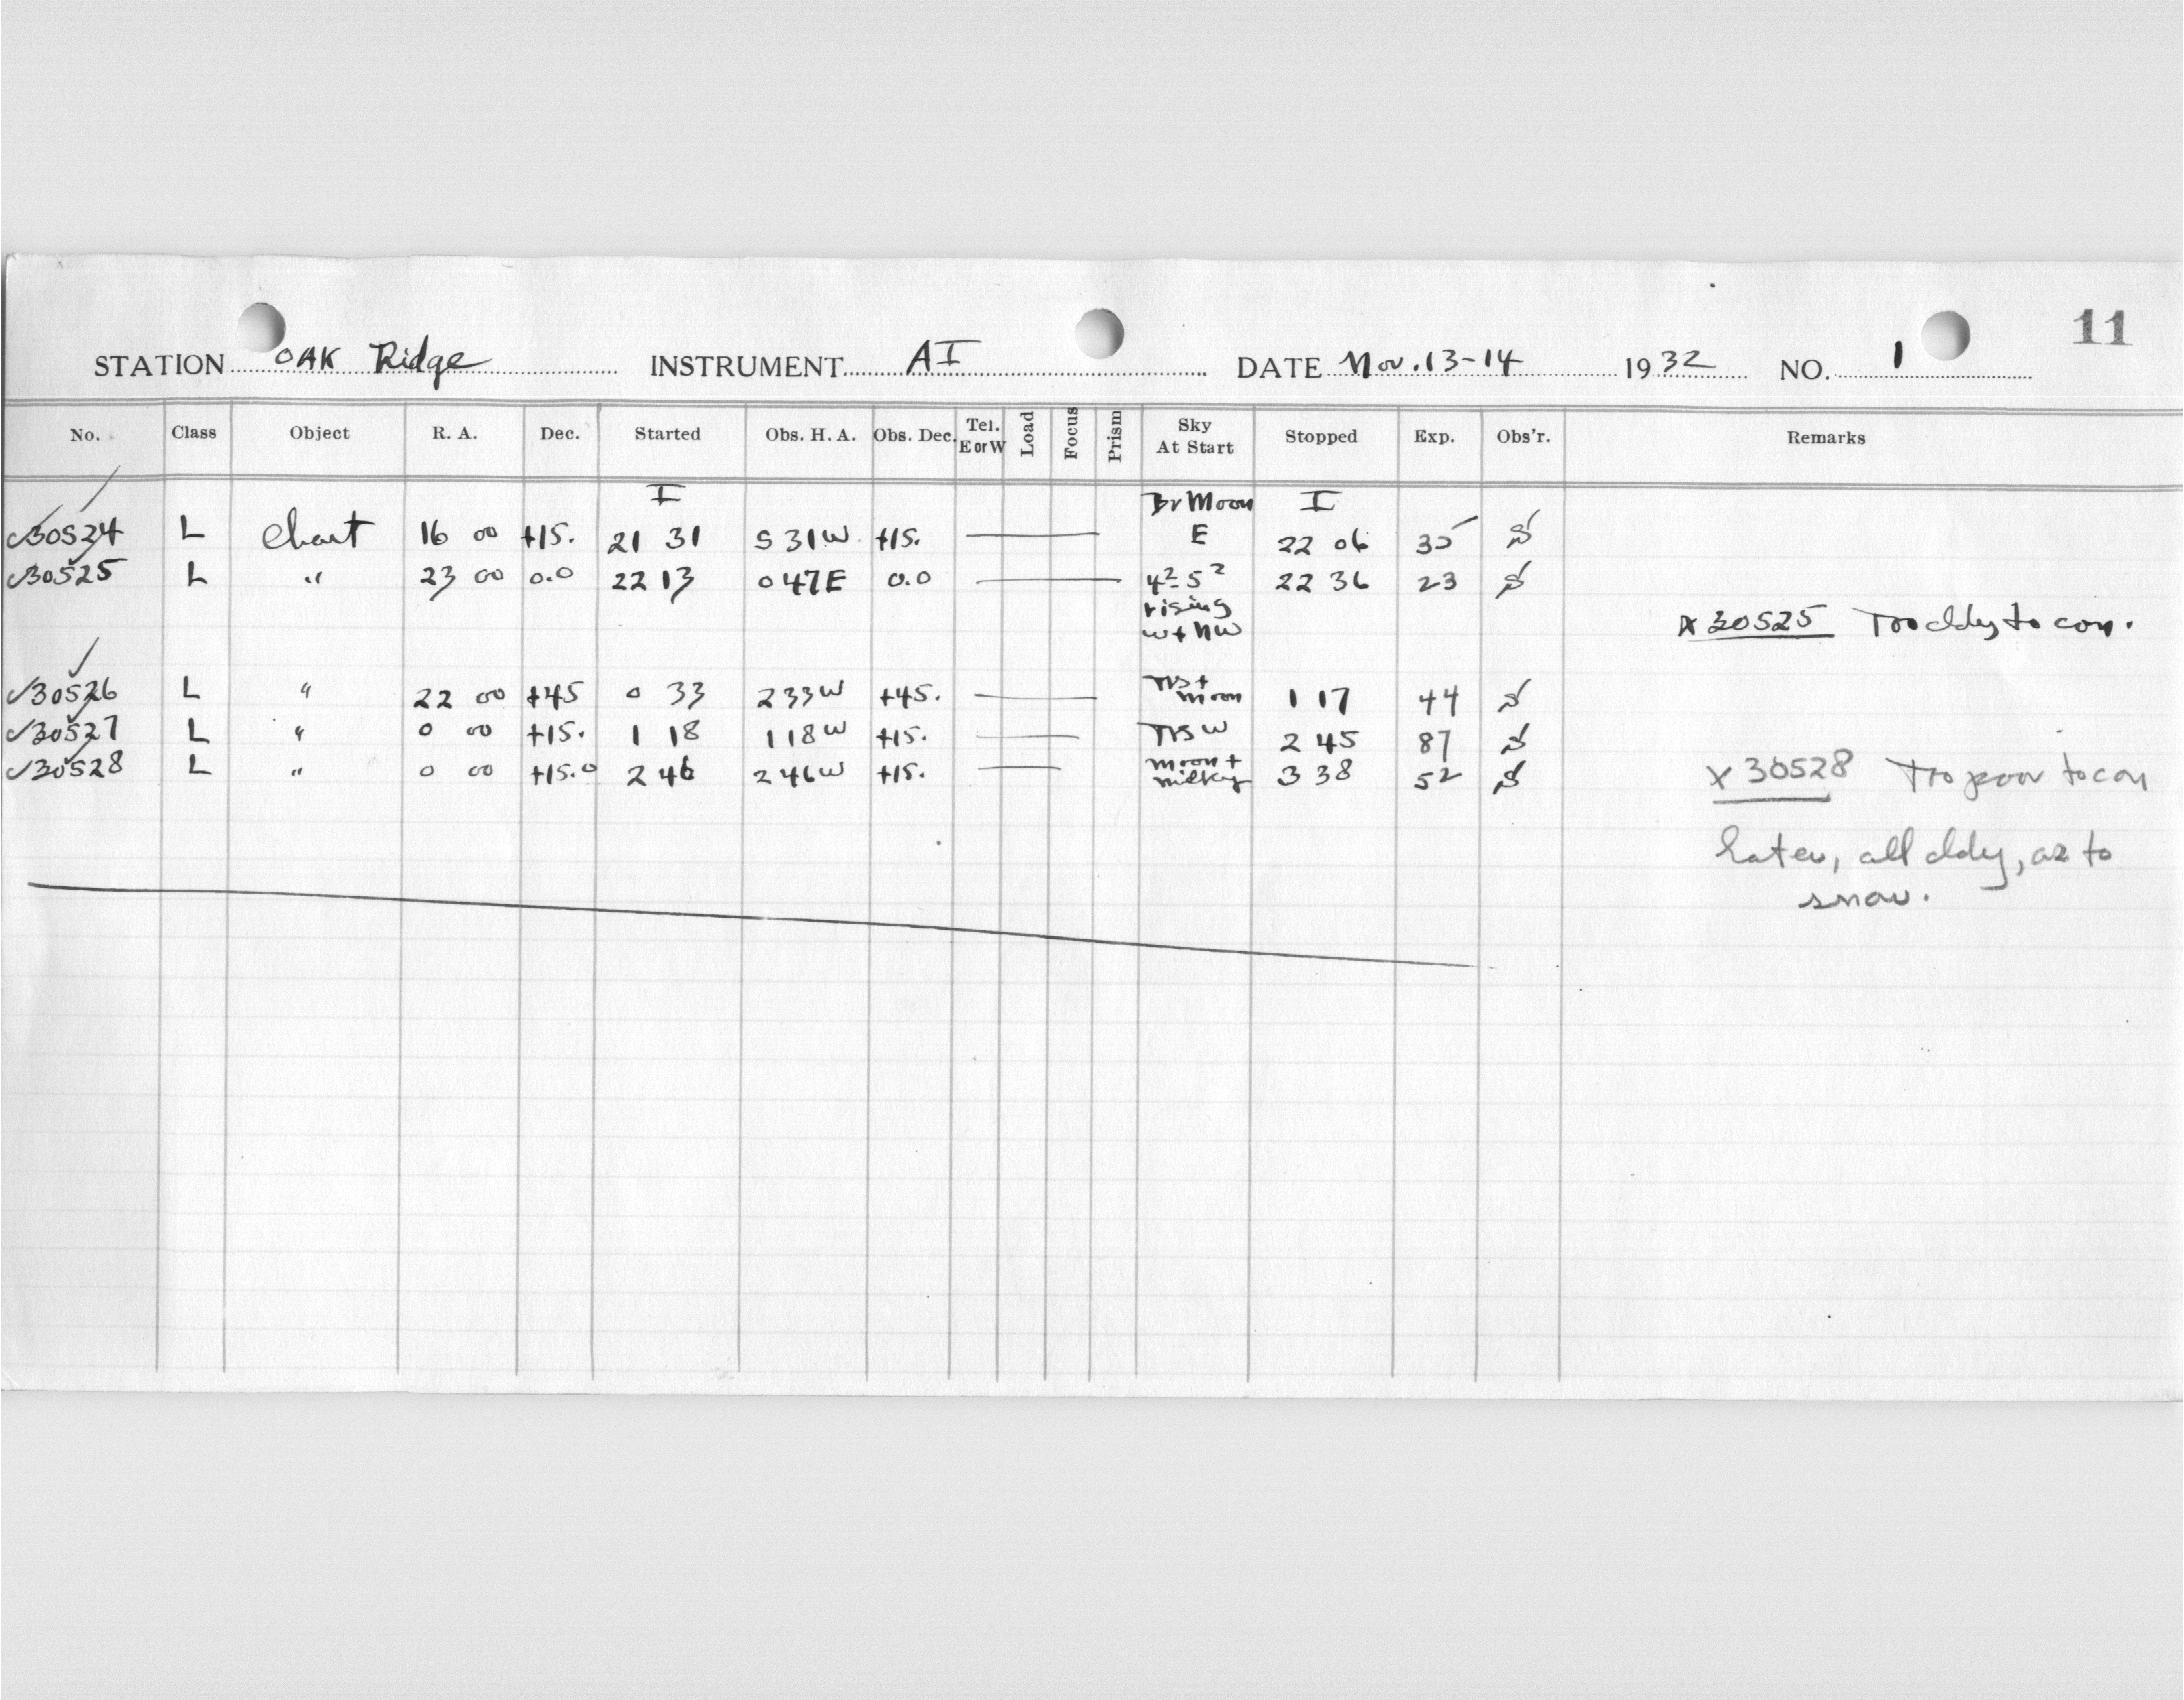 11
STATION OAK Ridge INSTRUMENT AI DATE Nov. 13-14 1932 NO. 1
No. Class Object R. A. Dec. Started Obs. H. A. Obs. Dec. Tel. E or W Load Focus Prism Sky At Start Stopped Exp. Obs'r. Remarks
I Br Moon I
30524 L Chart 16 00 +15. 21 31 5 31W +15. E 22 06 35
30525 L " 23 00 0.0 22 13 0 47E 0.0 4²-5² 22 36 23
rising
w + NW
x 30525 Too cldy to con.
30526 L " 22 00 +45 0 33 2 33W +45. moon 1 17 44
30527 L " 0 00 +15. 1 18 1 18W +15. W 2 45 87
30528 L " 0 00 +15.0 2 46 2 46W +15. moon + milky 3 38 52
x 30528 Too poor to con
Later, all cldy, as to
snow.